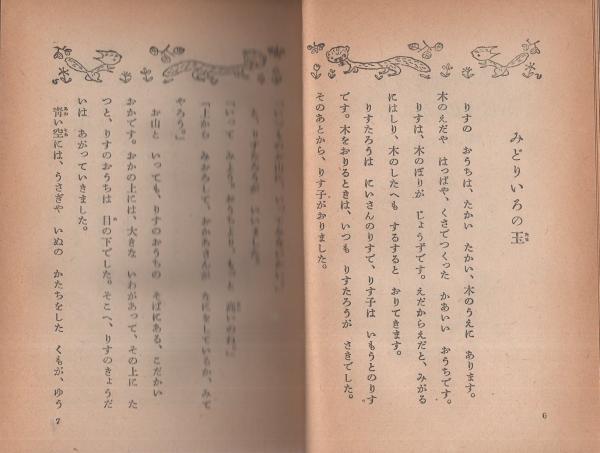 みどりいろの玉
りすの おうちは、たかい たかい、木のうえに あります。
木のえだや はっぱや、くさでつくった かあいい おうちです。
りすは、木のぼりが じょうずです。えだからえだと、みがる
にはしり、木のしたへも するすると おりてきます。
りすたろうは にいさんのりすで、りす子は いもうとのりす
です。木をおりるときは、いつも りすたろうが さきでした。
そのあとから、りす子がおりました。
6
と、りすたろうが いいました。
「いって みよう。おうちより、もっと 高いのね。」
「上から みおろして、おかあさんが なにをしているか、みて
やろう。」
お山と いっても、りすのおうちの そばにある、こだかい
おかです。おかの上には、大きな いわがあって、その上に た
つと、りすのおうちは 目の下でした。そこへ、りすのきょうだ
いは あがっていきました。
青い空には、うさぎや いぬの かたちをした くもが、ゆう
7